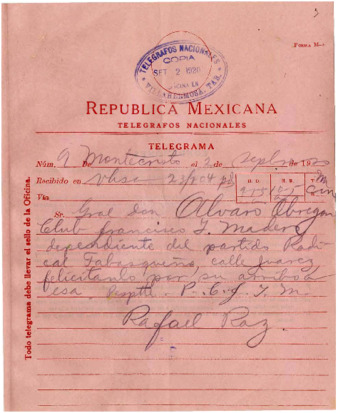 Forma M-1
TELEGRAFOS NACIONALES
COPIA
SET 2 1920
VILLAHERMOSA, TAB.
REPUBLICA MEXICANA
TELEGRAFOS NACIONALES
TELEGRAMA
Núm. 9 De Montecristo el 2 de Septbre 1920
Recibido en Vhsa
H. D. H. R.
Vía 915
Sr. Gral don Alvaro Obregon
Club francisco I. Madero
dependiente del partido Radi
cal Tabasqueño, calle Juarez
felicitanlo por su arribo á
esa. Resptte. P. C. f. I. M.
Rafael Paz.
Todo telegrama debe llevar el sello de la Oficina.